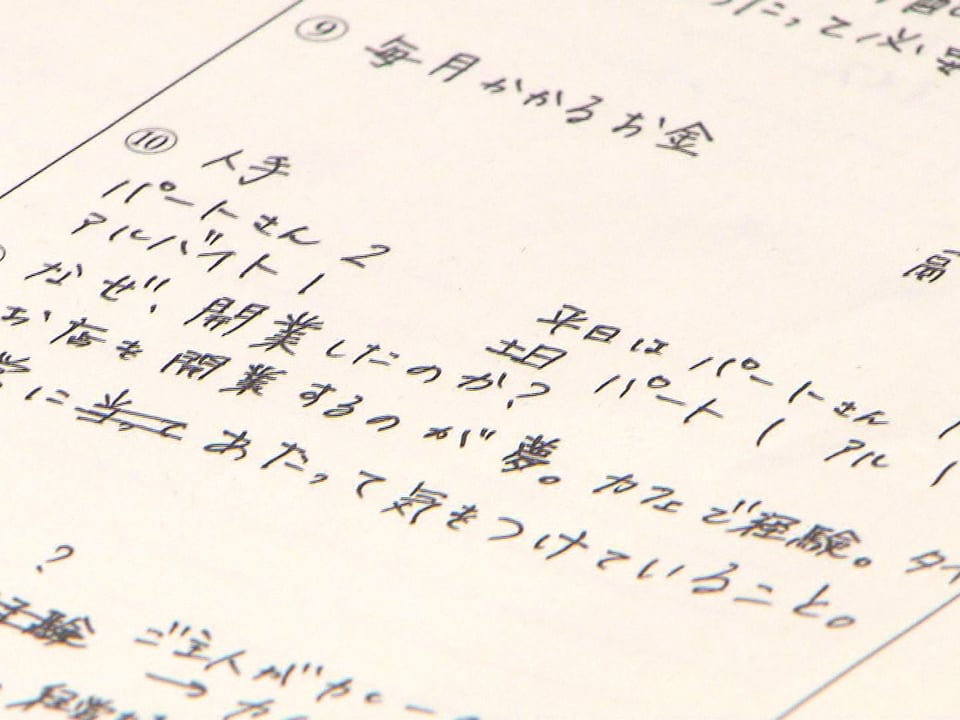 たって必要
⑨ 毎月かかるお金
⑩ 人手
パートさん 2
アルバイト 1
平日は パートさん 1
土日 パート 1 アル 1
なぜ、開業したのか?
お店を開業するのが夢。カフェで経験。タイ
営に当って あたって気をつけていること。
?
経験 ご主人がカ
→ カ